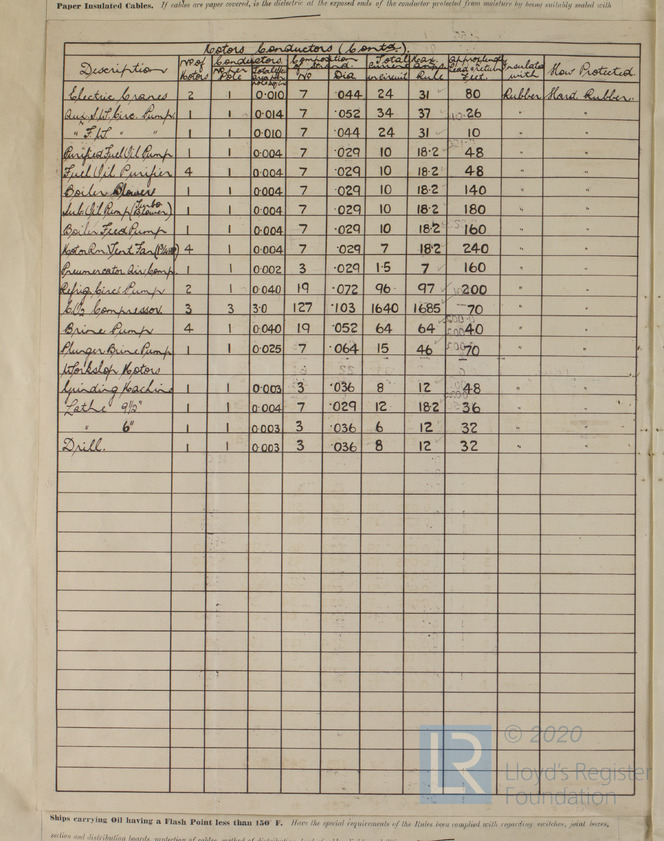 Paper Insulated Cables. If cables are paper covered, is the dielectric at the exposed ends of the conductor protected from moisture by being suitably sealed with
Motors Conductors (Contd).
Description No of Motors Conductors No per Pole Total Composition of Strand No Dia Total current in circuit Max. Rule Feet. Insulated with How Protected
Electric Cranes 2 1 0.010 7 .044 24 31 80 Rubber Hard Rubber.
Aux. S.W. Circ. Pump 1 1 0.014 7 .052 34 37 26 " "
" F.W. " " 1 1 0.010 7 .044 24 31 10 " "
Purified Fuel Oil Pump 1 1 0.004 7 .029 10 18.2 48 " "
Fuel Oil Purifier 4 1 0.004 7 .029 10 18.2 48 " "
Boiler Blowers 1 1 0.004 7 .029 10 18.2 140 " "
Lub. Oil Pump (Turbo Blower) 1 1 0.004 7 .029 10 18.2 180 " "
Boiler Feed Pump 1 1 0.004 7 .029 10 18.2 160 " "
Motor Rm. Vent Fan 4 1 0.004 7 .029 7 18.2 240 " "
Pneumercator Air Comp. 1 1 0.002 3 .029 1.5 7 160 " "
Refrig. Circ. Pump 2 1 0.040 19 .072 96 97 200 " "
CO2 Compressor 3 3 3.0 127 .103 1640 1685 70 " "
Brine Pump 4 1 0.040 19 .052 64 64 40 " "
Plunger Brine Pump 1 1 0.025 7 .064 15 46 70 " "
Workshop Motors
Grinding Machine 1 1 0.003 3 .036 8 12 48 " "
Lathe 9½" 1 1 0.004 7 .029 12 18.2 36 " "
" 6" 1 1 0.003 3 .036 6 12 32 " "
Drill. 1 1 0.003 3 .036 8 12 32 " "
© 2020
LR
Lloyd's Register
Foundation
Ships carrying Oil having a Flash Point less than 150° F. Have the special requirements of the Rules been complied with regarding switches, joint boxes,